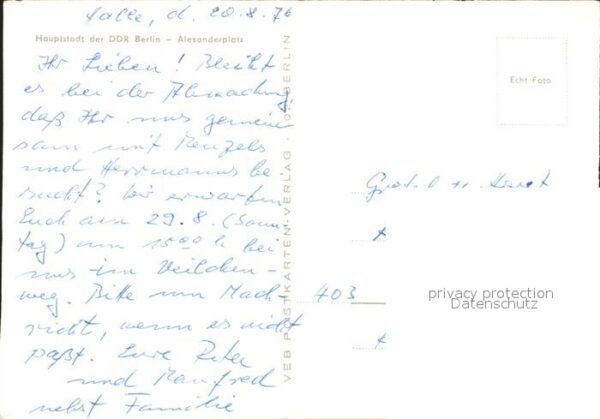 Halle, d. 20.8.76
Hauptstadt der DDR Berlin – Alexanderplatz
Ihr Lieben! Bleibt
es bei der Abmachung,
daß Ihr uns gemein-
sam mit Menzels
und Herrmanns be-
sucht? Wir erwarten
Euch am 29.8. (Sonn-
tag) um 15⁰⁰ h bei
uns im Veilchen-
weg. Bitte um Nach-
richt, wenn es nicht
paßt. Eure Rita
und Manfred
nebst Familie
VEB POSTKARTEN-VERLAG BERLIN
Echt Foto
403
privacy protection
Datenschutz